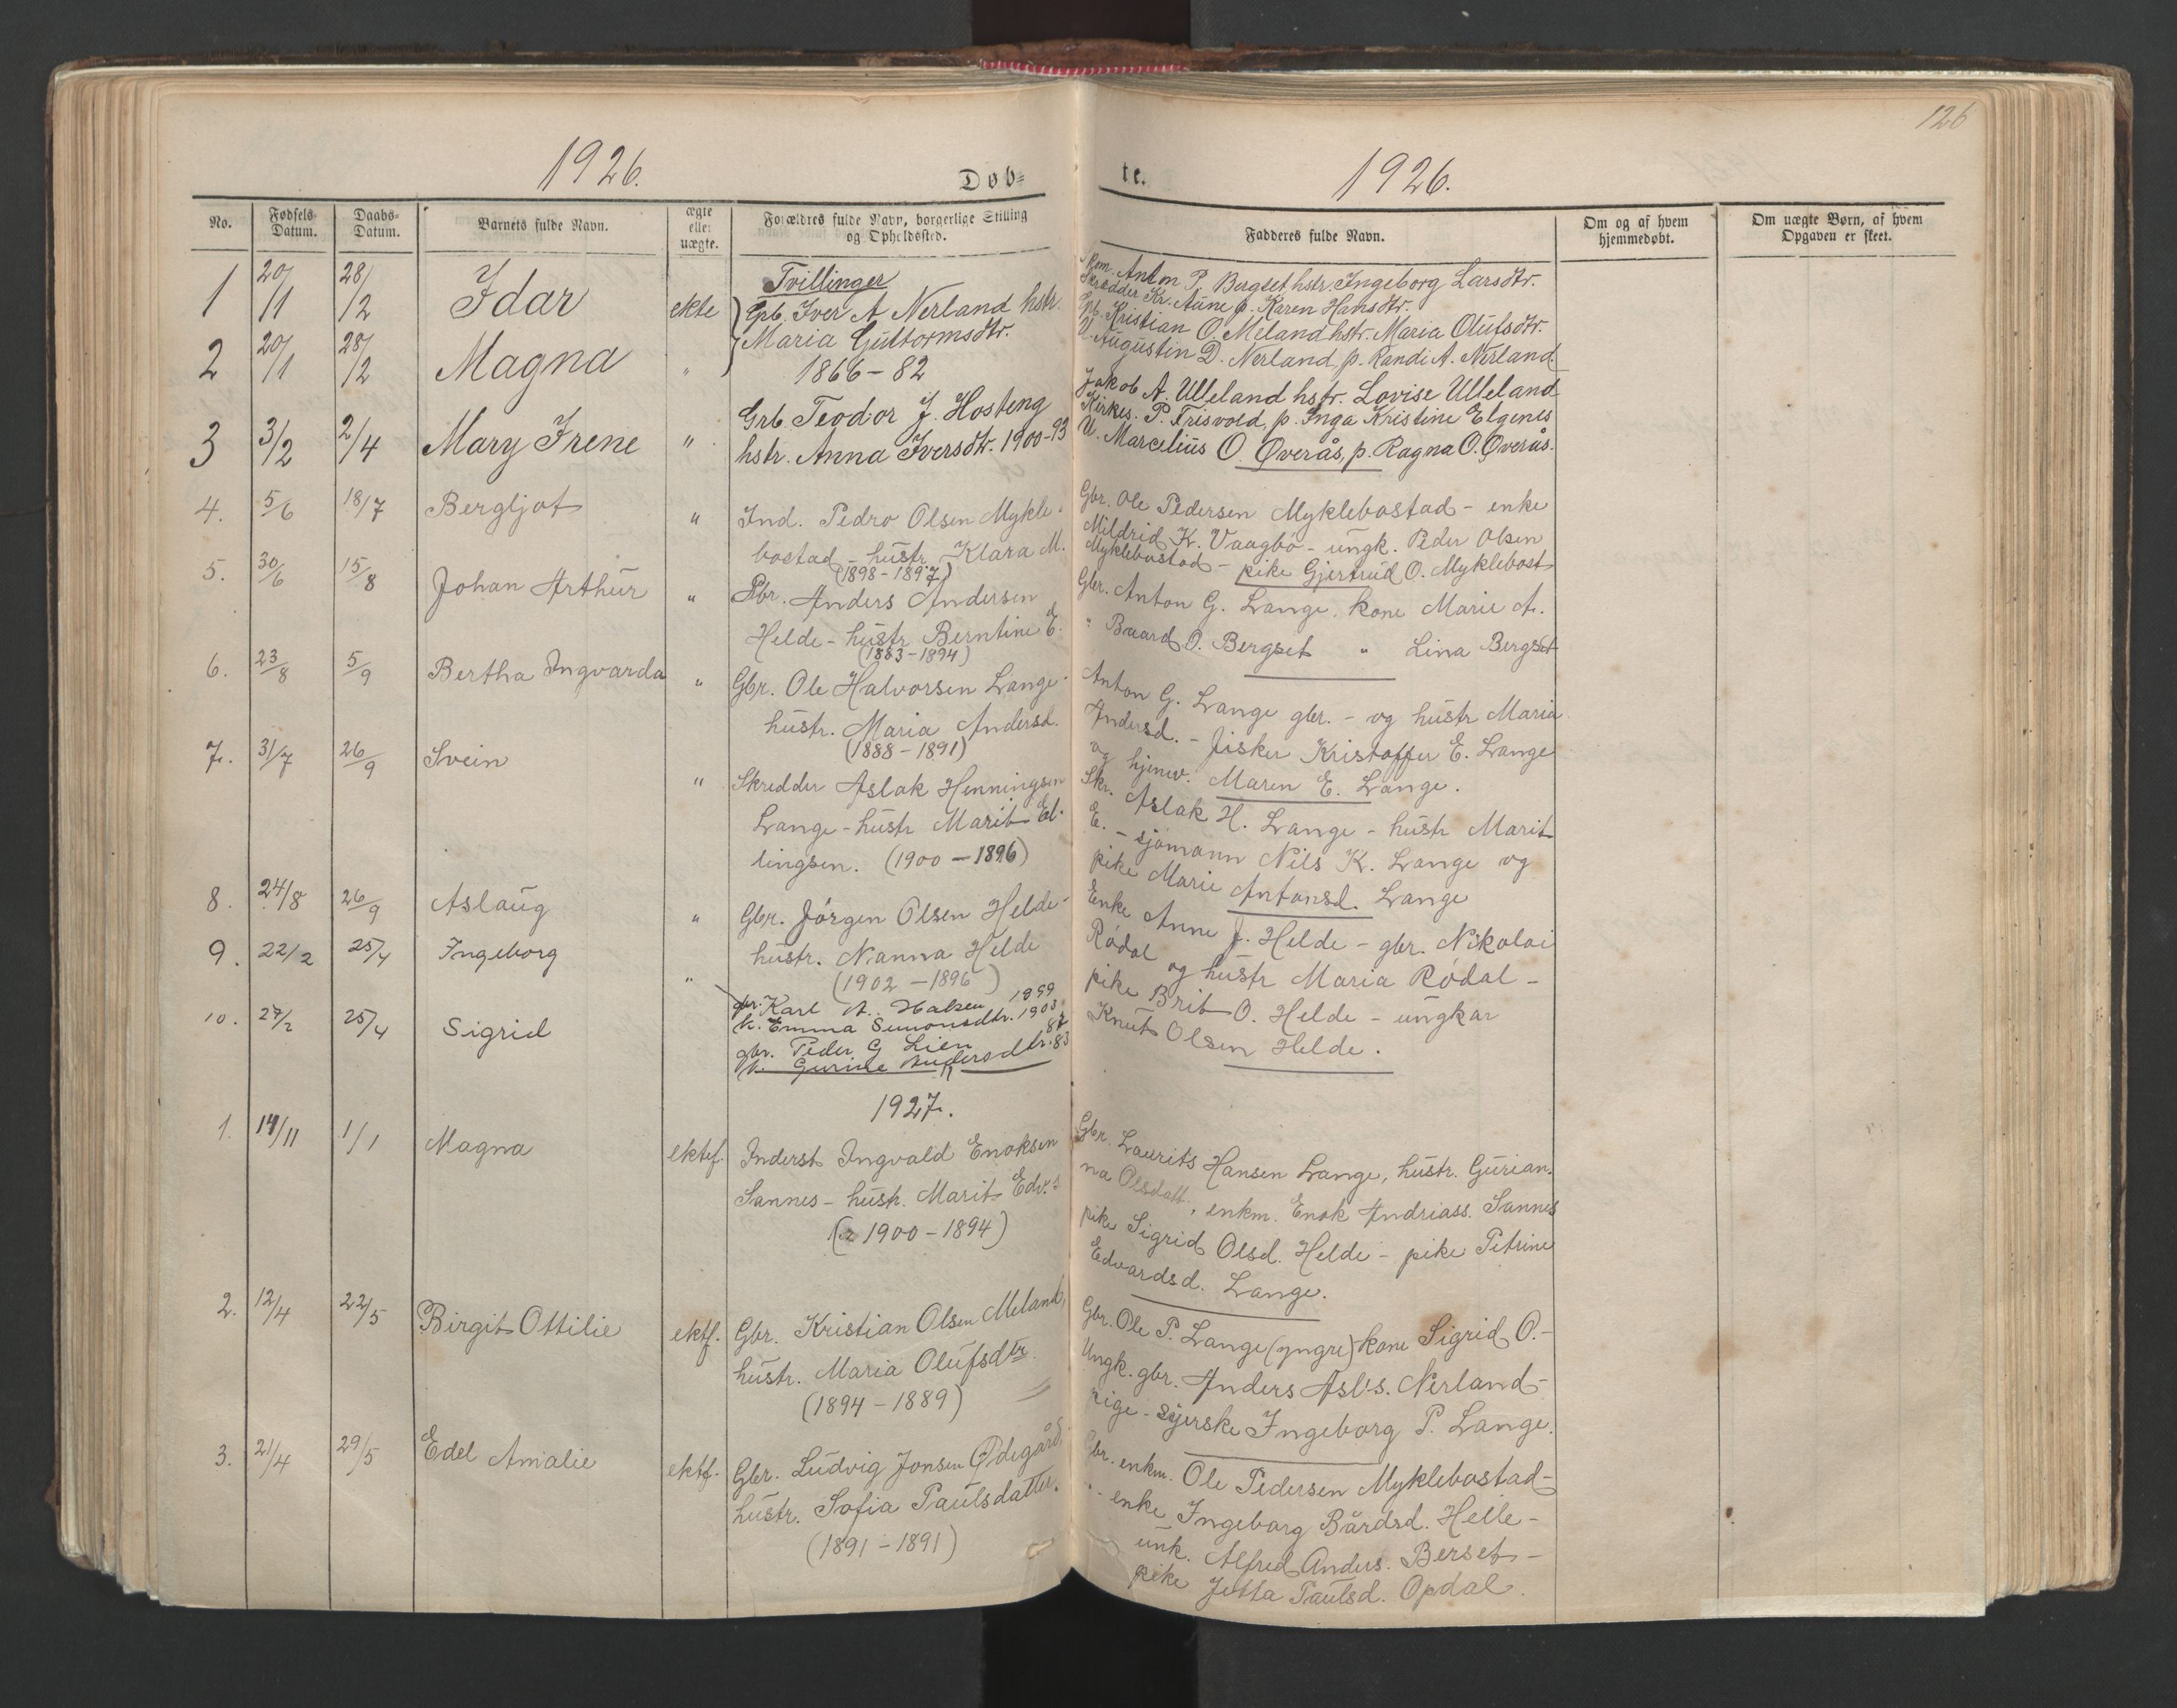 126
1926.
Døb=
te.
1926.
No.
Fødsels-
Datum.
Daabs-
Datum.
Barnets fulde Navn.
ægte
eller
uægte.
Forældres fulde Navn, borgerlige Stilling
og Opholdssted.
Fadderes fulde Navn.
Om og af hvem
hjemmedøbt.
Om uægte Børn, af hvem
Opgaven er skeet.
Tvillinger
1 20/1 28/2 Idar ekte Gpb. Iver A Nerland hstr.
Maria Guttormsdtr.
2 20/1 28/2 Magna "
1866-82
Anton P. Bergset hstr. Ingeborg Larsdtr.
Skrædder Kr. Aune p. Karen Hansdtr.
Kristian O. Meland hstr. Maria Olufsdtr.
U. Augustin D. Nerland, p. Randi A. Nerland.
3 3/2 2/4 Mary Irene " Grb. Teodor J. Hosteng
hstr. Anna Iversdtr. 1900-93
Jakob A. Ulleland hstr. Lovise Ulleland
Kirkes. P. Trisvold, p. Inga Kristine Elgenes
U. Marcelius O. Øverås, p. Ragna O. Øverås.
4. 5/6 18/7 Bergljot " Ind. Pedro Olsen Mykle-
bostad - hustr. Klara M.
(1898-1897)
Gbr. Ole Pedersen Myklebostad - enke
Mildrid K. Vaagbø - ungk. Peder Olsen
Myklebostad - pike Gjertrud O. Myklebost
5. 30/6 15/8 Johan Arthur " Gbr. Anders Andersen
Helde - hustr Berntine E.
(1883-1894)
Gbr. Anton G. Lange, kone Marie A.
" Baard O. Bergset " Lina Bergset
6. 23/8 5/9 Bertha Ingvarda " Gbr. Ole Halvorsen Lange-
hustr. Maria Andersd.
(1888-1891)
Anton G. Lange gbr. - og hustr Maria
Andersd. - fisker Kristoffer E. Lange
og hjemv. Maren E. Lange.
7. 31/7 26/9 Svein " Skredder Aslak Henningsen
Lange - hustr Marit El-
lingsen. (1900-1896)
Skr. Aslak H. Lange - hustr Marit
E. - sjømann Nils K. Lange og
pike Marie Antonsd. Lange
8. 24/8 26/9 Aslaug " Gbr. Jørgen Olsen Helde-
hustr. Nanna Helde
(1902-1896)
Enke Anne J. Helde - gbr. Nikolai
Rødal og hustr Maria Rødal -
pike Brit O. Helde - ungkar
Knut Olsen Helde.
9. 22/2 25/4 Ingeborg " gbr. Karl A. Halsen 1899
h. Emma Simonsdtr. 1903
10. 27/2 25/4 Sigrid gbr. Peder G Lien 87
h. Gurine Andersdtr. 83
1927.
1. 14/11 1/1 Magna ektef. Inderst Ingvald Enoksen
Sannes - hustr. Marit Edv.s
(1900-1894)
Gbr. Laurits Hansen Lange, hustr. Gurian-
na Olsdatt., enkm. Enok Andriass. Sannes
pike Sigrid Olsd. Helde - pike Petrine
Edvardsd. Lange.
2. 12/4 22/5 Birgit Ottilie ektf. Gbr. Kristian Olsen Meland,
hustr. Maria Olufsdtr.
(1894-1889)
Gbr. Ole P. Lange (yngre) - kone Sigrid O. -
Ungk. gbr. Anders Asl's. Nerland -
pige - syerske Ingeborg P. Lange.
3. 21/4 29/5 Edel Amalie ektf. Gbr. Ludvig Jonsen Ødegård,
hustr. Sofia Paulsdatter.
(1891-1891)
Gbr. enkm. Ole Pedersen Myklebostad -
" - enke Ingeborg Bårdsd. Helle -
unk. Alfred Anders. Berset -
pike Jetta Paulsd. Opdal.